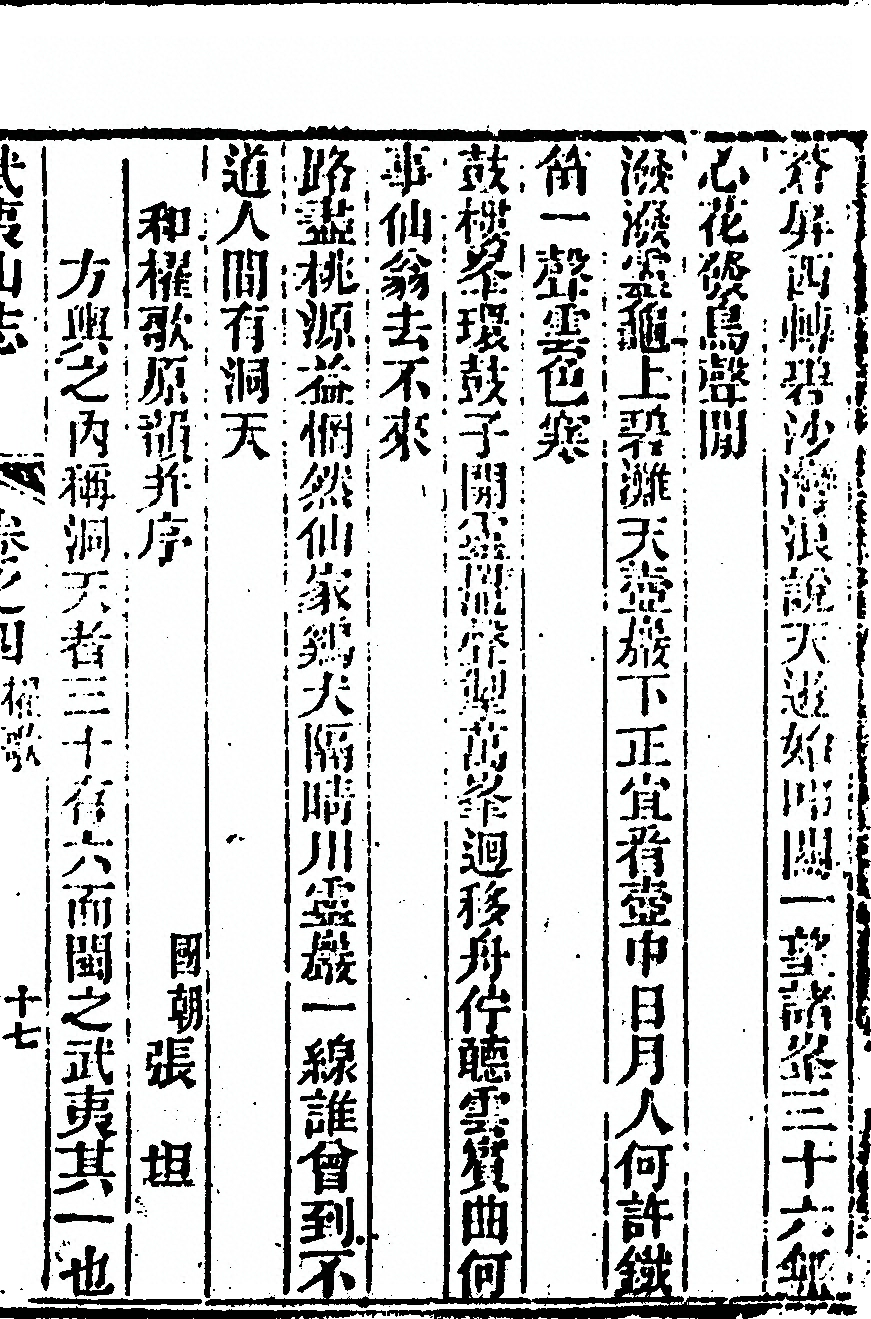 蒼屏西轉碧沙灣浪說天遊始啓關一望諸峯三十六無
心花發鳥聲閒
潑潑靈龜上碧灘天壺巖下正宜看壺中日月人何許鐵
笛一聲雲色寒
鼓樓峯環鼓子開靈聲萬峯迴移舟佇聽雲賓曲何
事仙翁去不來
路盡桃源益惘然仙家鷄犬隔晴川靈巖一線誰曾到不
道人間有洞天
和櫂歌原韻并序
國朝張 坦
方輿之內稱洞天者三十有六而閩之武夷其一也
武夷山志 卷之四 櫂歌 十七